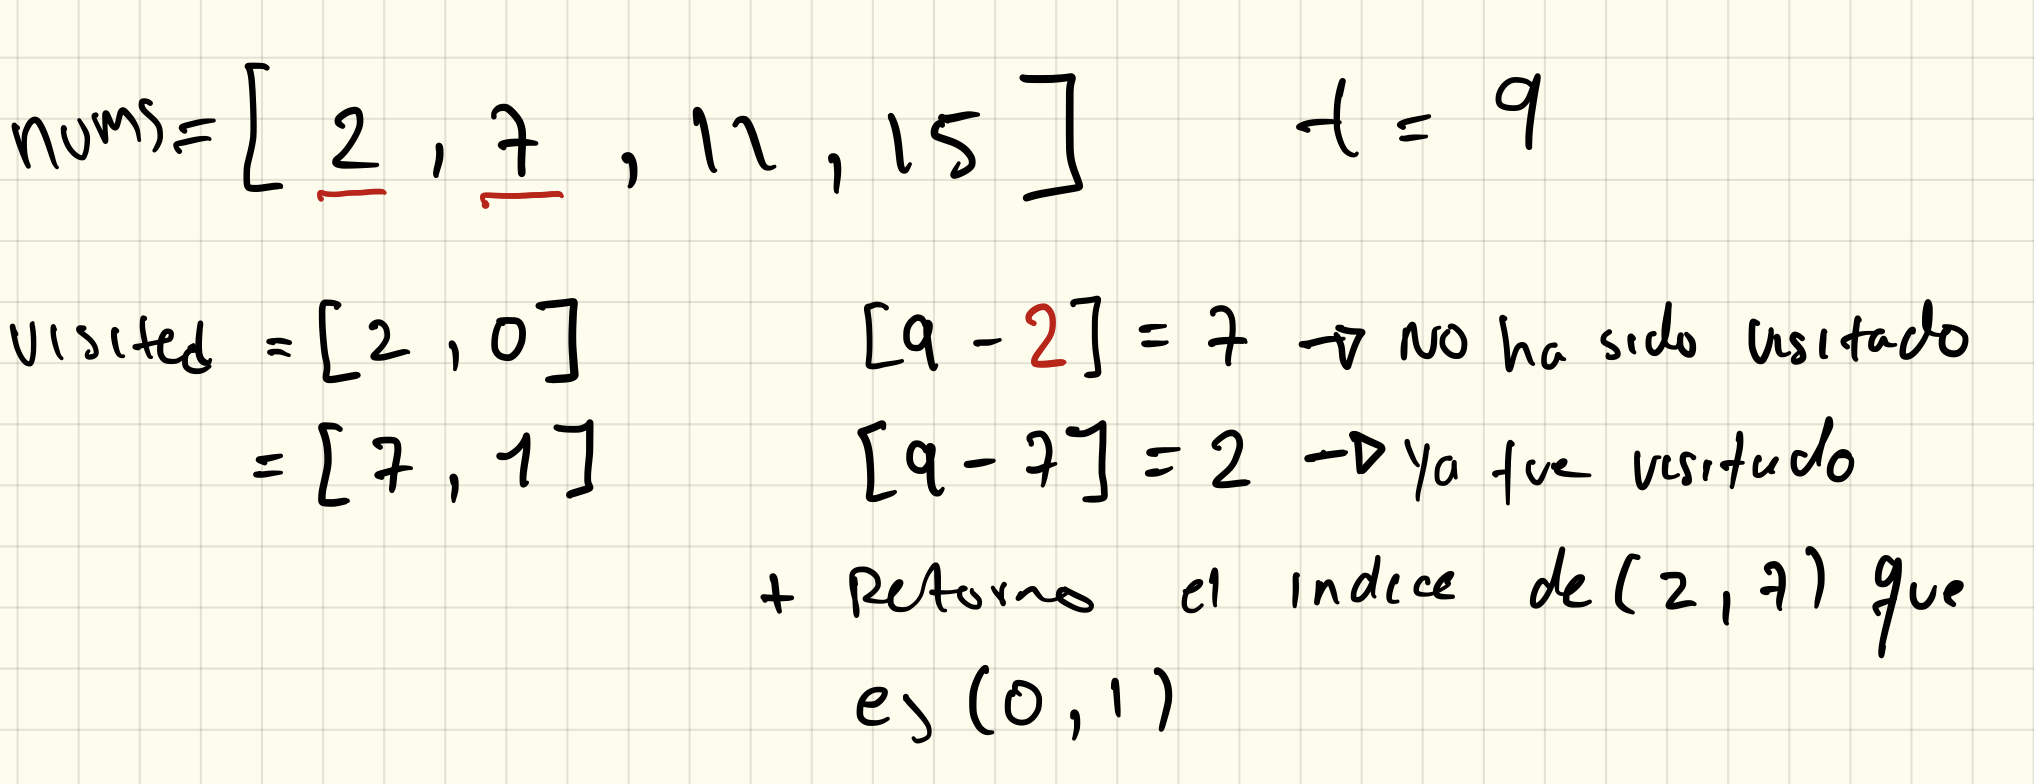 nums = [ 2 , 7 , 11 , 15 ] t = 9
visited = [ 2 , 0 ] [9 - 2] = 7 → No ha sido visitado
= [ 7 , 1 ] [9 - 7] = 2 → ya fue visitado
+ Retorno el indice de (2, 7) que
es (0, 1)